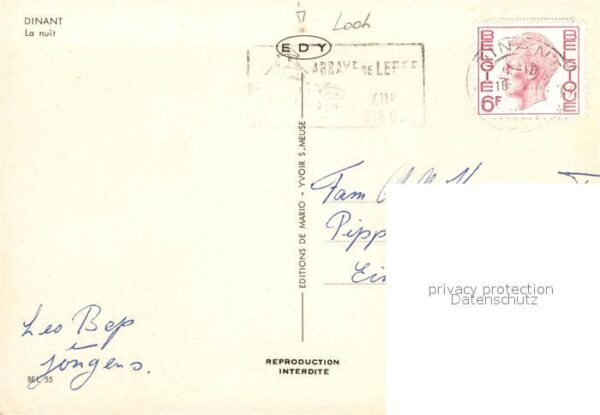 DINANT
La nuit
Loch
EDY
ABBAYE DE LEFFE
XIIe
SIECLE
BELGIE BELGIQUE
6F
DINANT
18
EDITIONS DE MARIO - YVOIR S. MEUSE
Fam
Pipp
Ei
privacy protection
Datenschutz
Leo Bep
e
jongens.
BEL 55
REPRODUCTION
INTERDITE